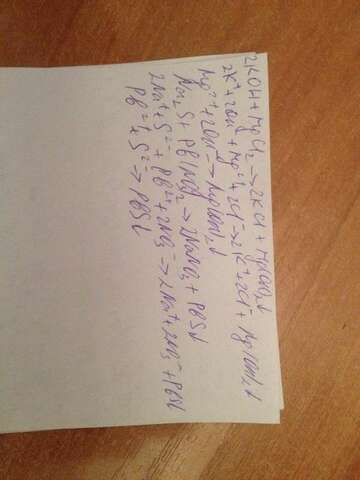 2KOH + MgCl₂ → 2KCl + Mg(OH)₂↓
2K⁺ + 2OH⁻ + Mg²⁺ + 2Cl⁻ → 2K⁺ + 2Cl⁻ + Mg(OH)₂↓
Mg²⁺ + 2OH⁻ → Mg(OH)₂↓
Na₂S + Pb(NO₃)₂ → 2NaNO₃ + PbS↓
2Na⁺ + S²⁻ + Pb²⁺ + 2NO₃⁻ → 2Na⁺ + 2NO₃⁻ + PbS↓
Pb²⁺ + S²⁻ → PbS↓